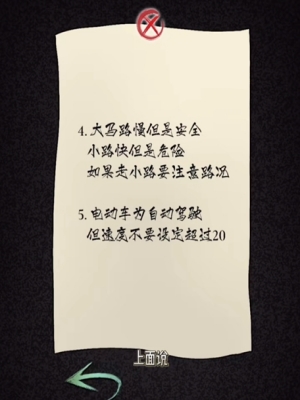 4. 大马路慢但是安全
小路快但是危险
如果走小路要注意路况
5. 电动车为自动驾驶
但速度不要设定超过20
上面说